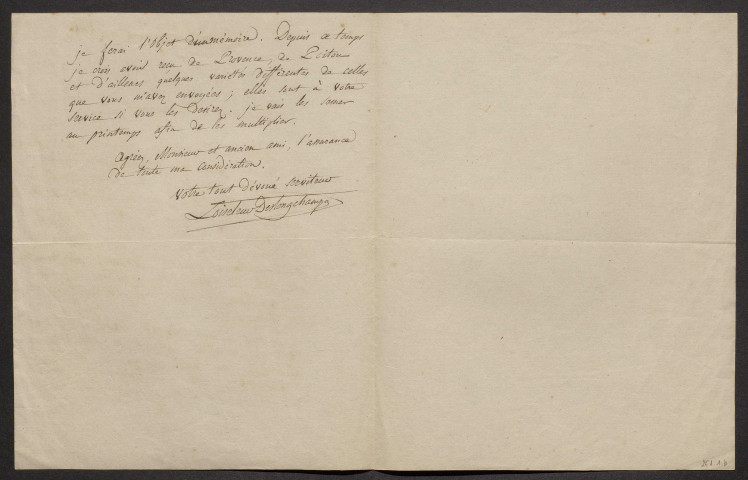 je ferai l'objet d'un mémoire. Depuis ce temps
je crois avoir reçu de Provence, de Poitou
et d'ailleurs quelques variétés différentes de celles
que vous m'avez envoyées ; elles sont à votre
service si vous les desirez. je vais les semer
au printemps afin de les multiplier.
Agréez, Monsieur et ancien ami, l'assurance
de toute ma considération.
Votre tout dévoué serviteur
Loiseleur Deslongchamps